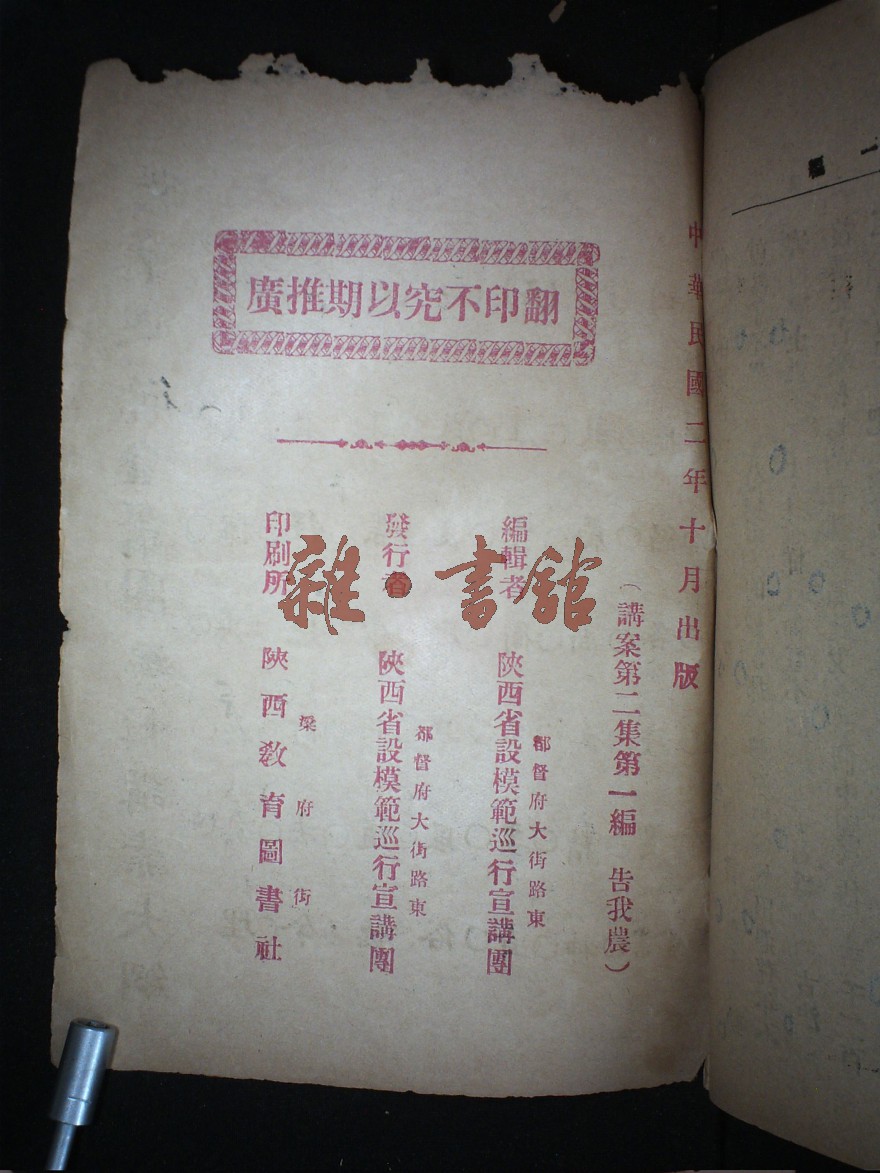 中華民國二年十月出版
(講案第二集第一編 告我農)
翻印不究以期推廣
編輯者 陝西省設模範巡行宣講團
都督府大街路東
發行者 陝西省設模範巡行宣講團
都督府大街路東
印刷所 陝西教育圖書社
梁府街
雜·書館
一編